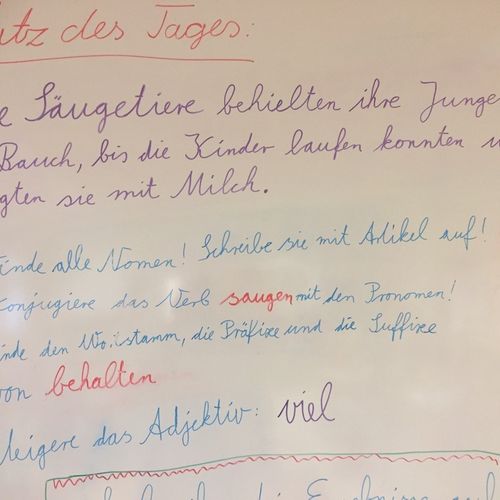 atz des Tages:
e Säugetiere behielten ihre Junge
Bauch, bis die Kinder laufen konnten u
gten sie mit Milch.
inde alle Nomen! Schreibe sie mit Artikel auf!
Konjugiere das Verb saugen mit den Pronomen!
inde den Wortstamm, die Präfixe und die Suffixe
von behalten
teigere das Adjektiv: viel